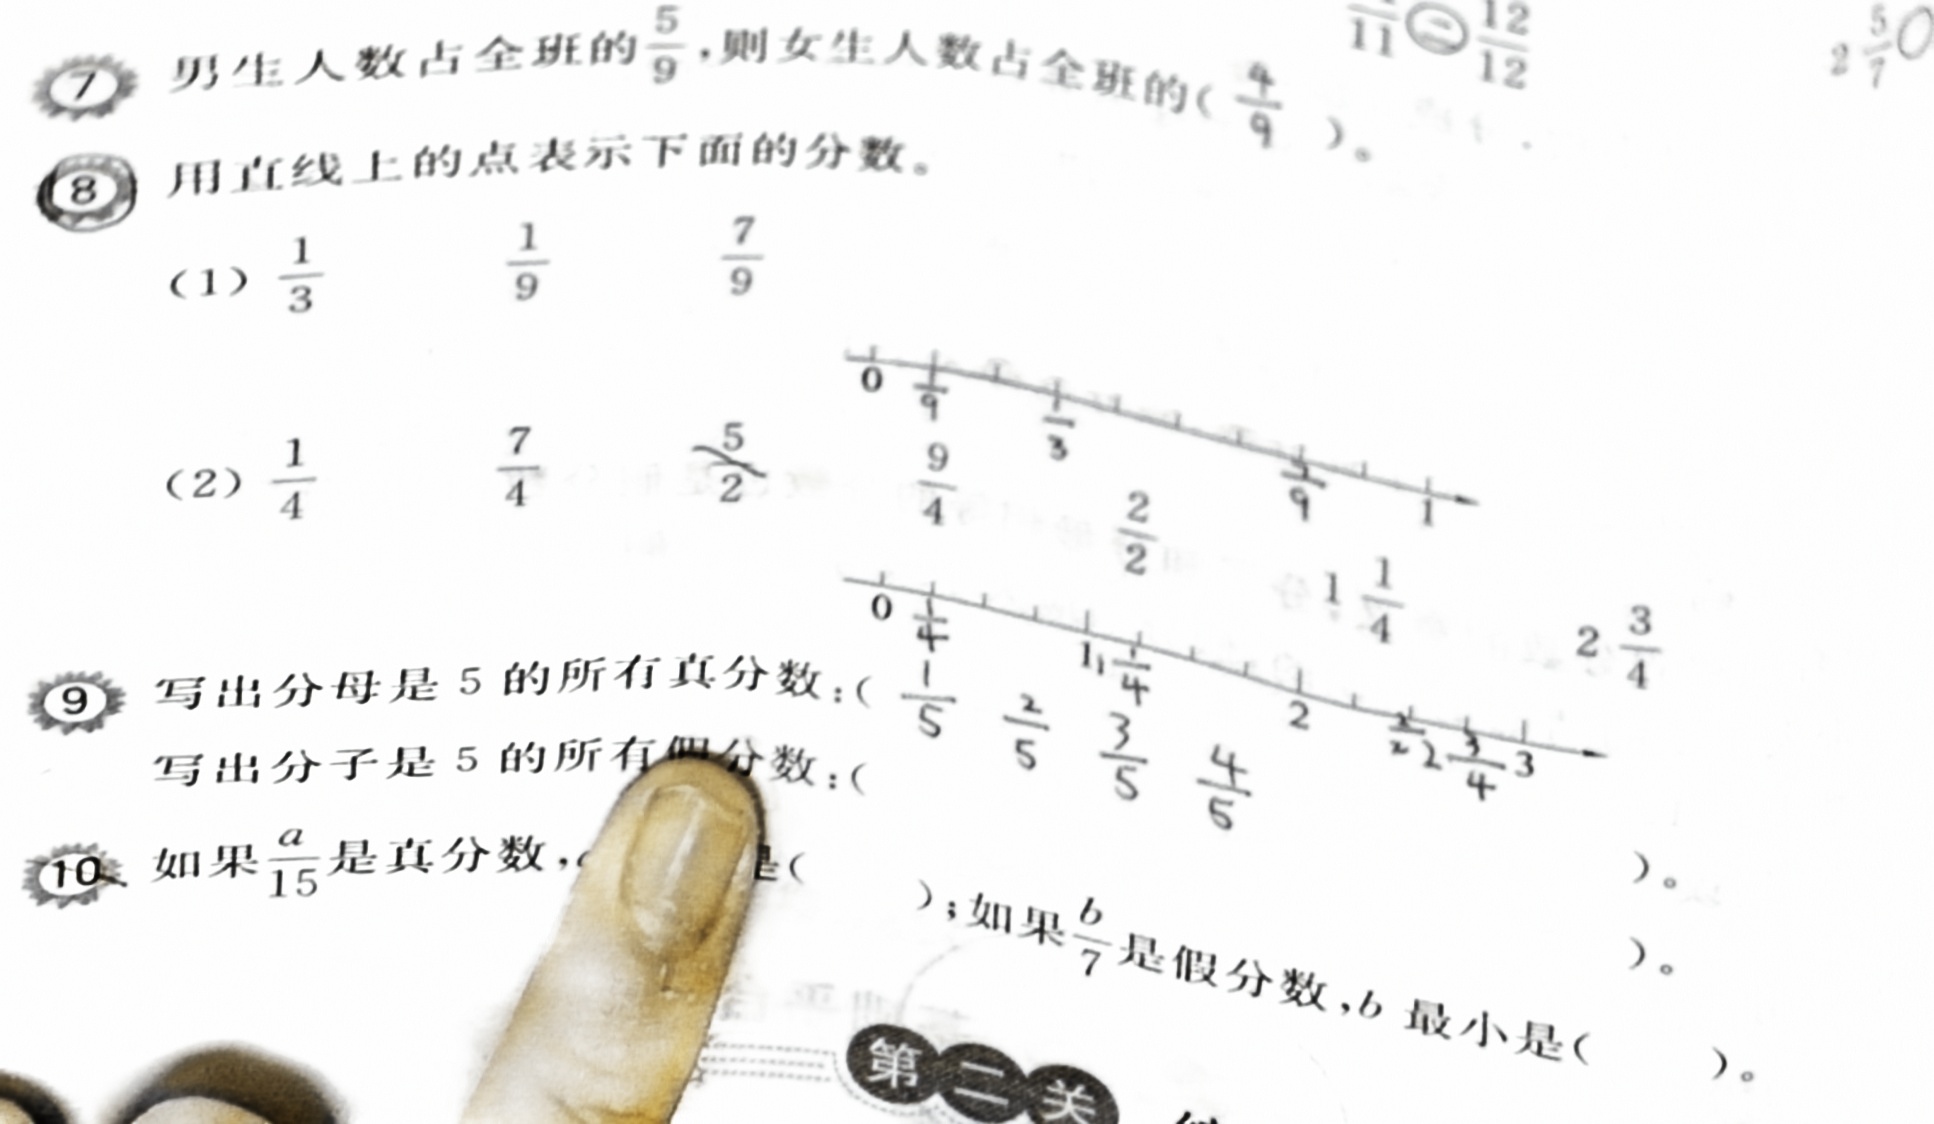 11 = 12/12 2 5/7
7 男生人数占全班的5/9,则女生人数占全班的( 4/9 )。
8 用直线上的点表示下面的分数。
(1) 1/3 1/9 7/9
0 1/9 1/3 9 1
(2) 1/4 7/4 5/2 9/4 2/2 1 1/4 2 3/4
0 1/4 1 1 1/4 2 2 3/4 3
9 写出分母是 5 的所有真分数:( 1/5 2/5 3/5 4/5 )。
写出分子是 5 的所有假分数:( )。
10 如果a/15是真分数, 是( );如果b/7是假分数,b 最小是( )。
第二关